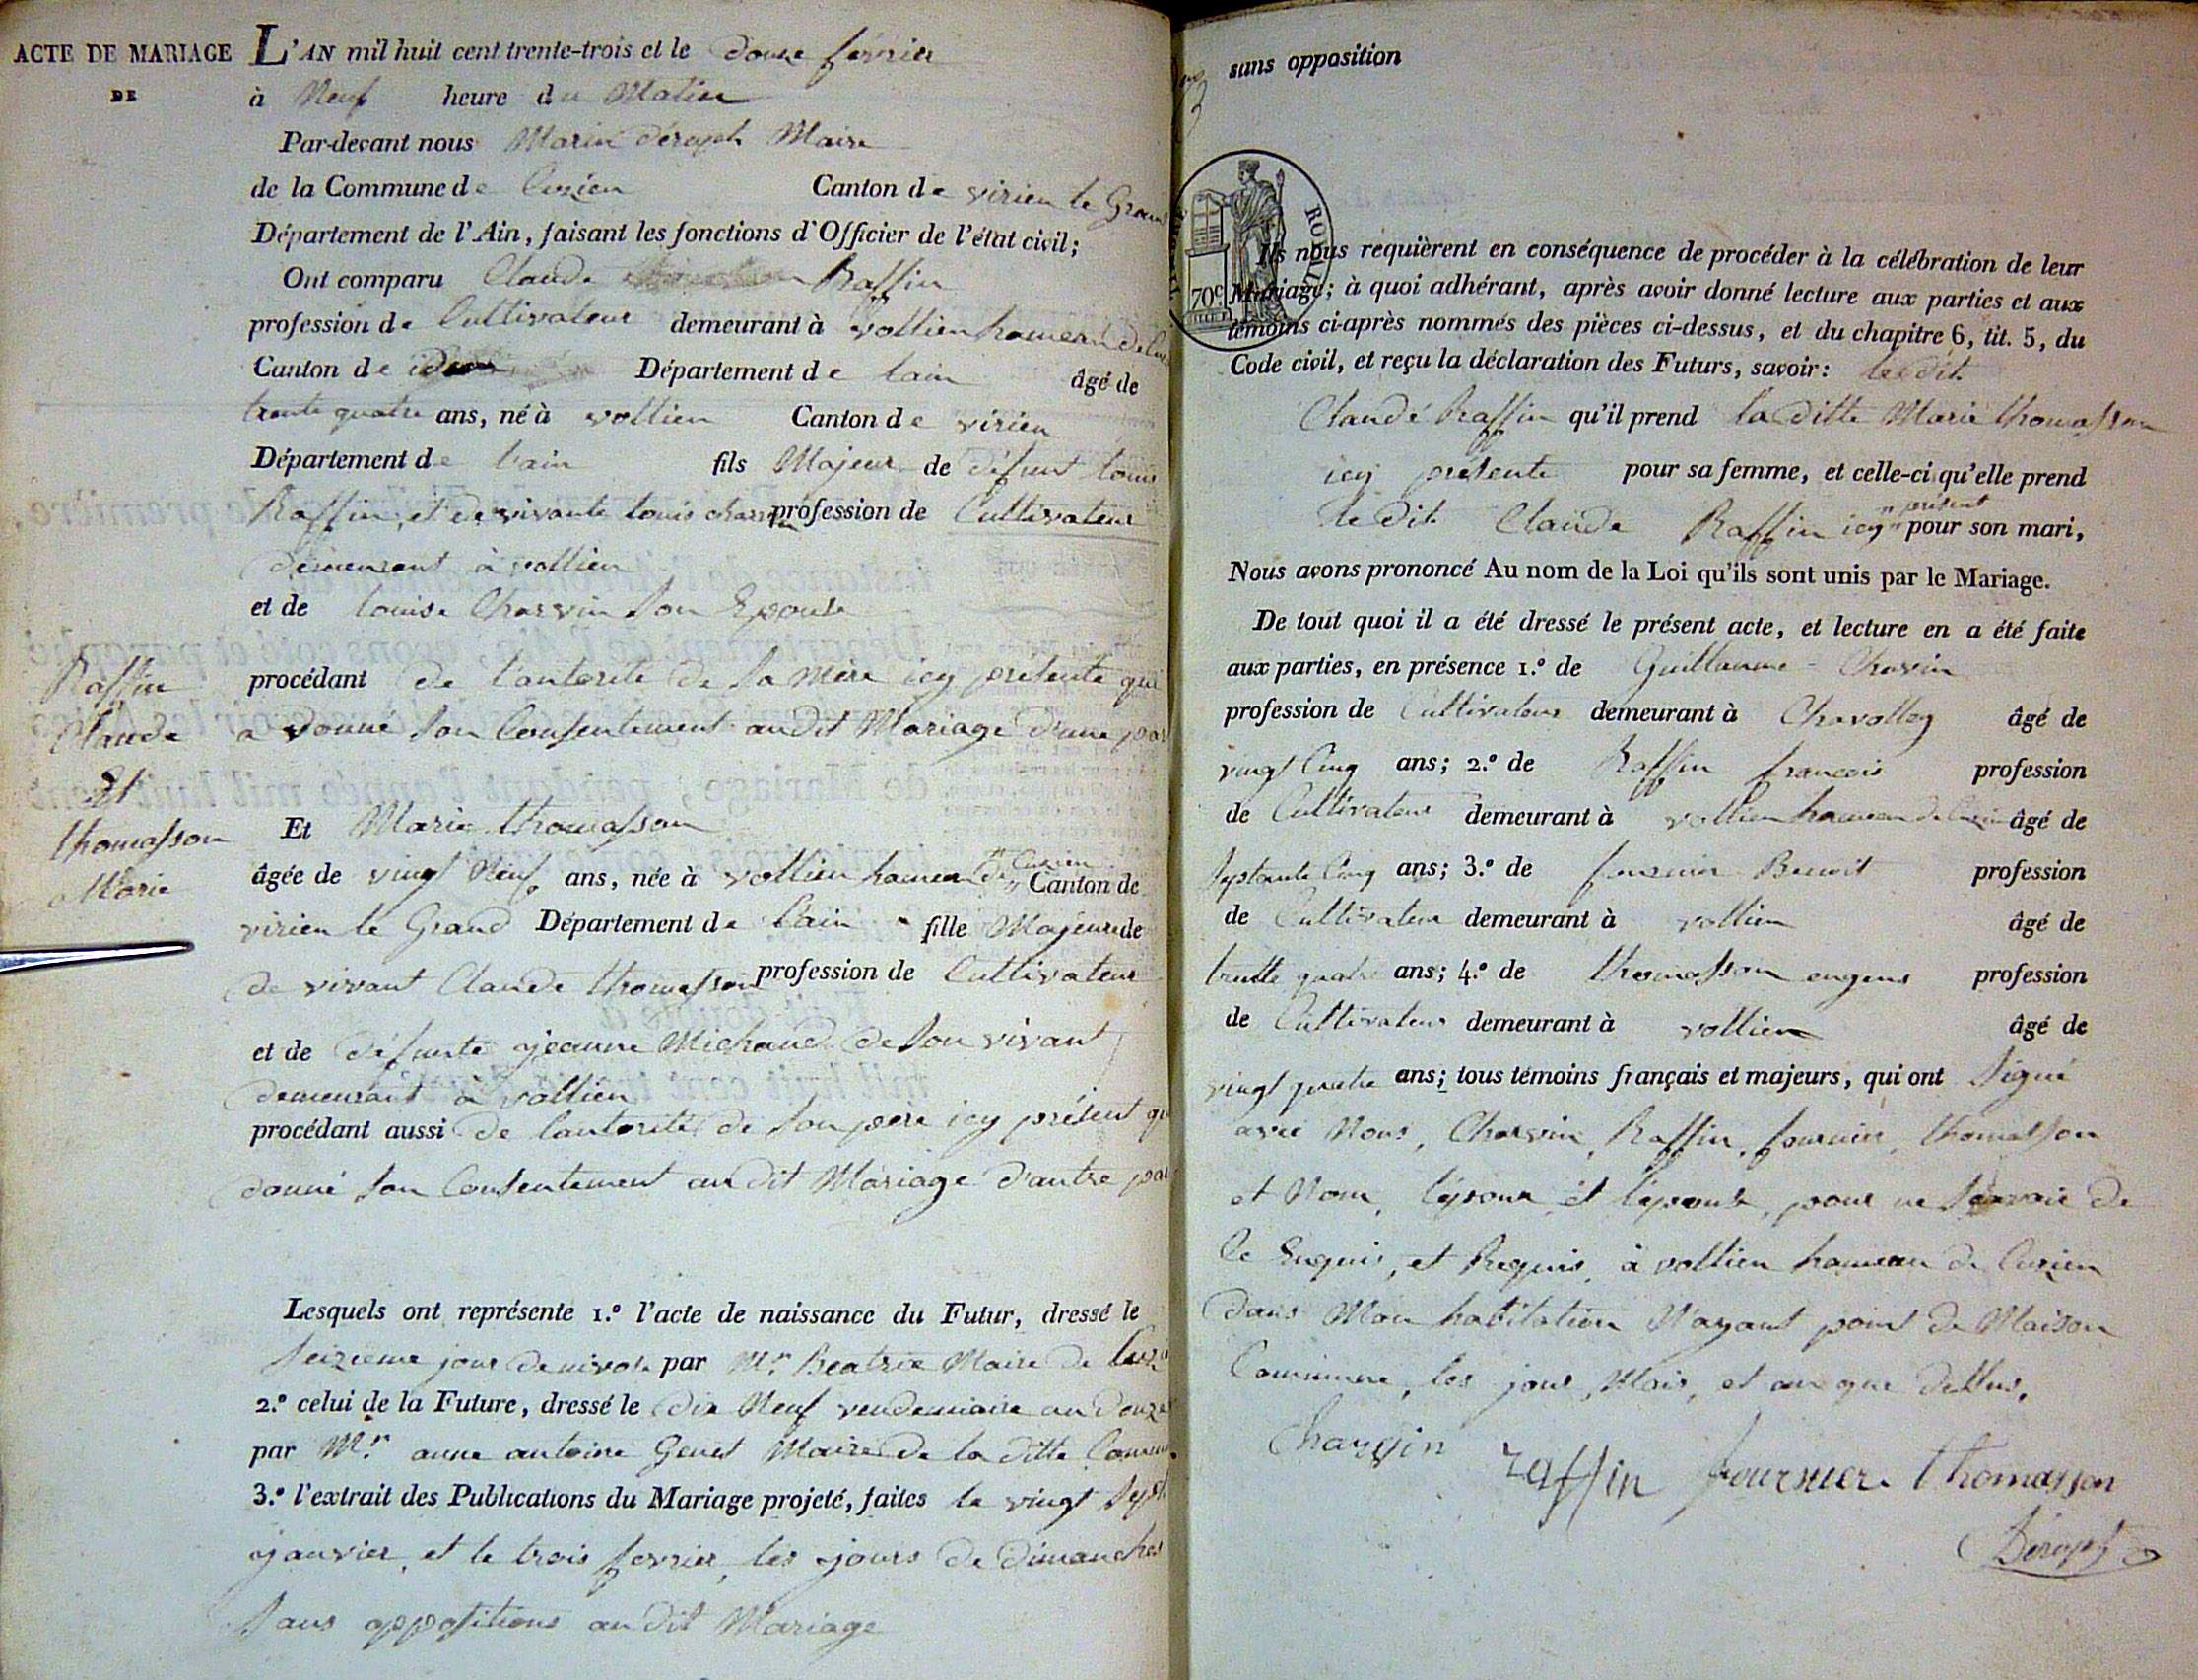 ACTE DE MARIAGE
DE
Raffin
Claude
Et
thomasson
Marie
L'AN mil huit cent trente-trois et le douze fevrier
à Neuf heure du Matin
Par-devant nous Marin Maire
de la Commune de Cuzieu Canton de virieu le Grand
Département de l'Ain, faisant les fonctions d'Officier de l'état civil;
Ont comparu Claude Raffin
profession de Cultivateur demeurant à vollien hameau de
Canton de Département de lain âgé de
trente quatre ans, né à vollien Canton de virieu
Département de l'ain fils Majeur de défunt louis
Raffin, et de vivante louis profession de Cultivateur
demeurant à vollien
et de louise Charvin son Epouse
procédant de l'autorité de sa mère icy présente qui
a donné son Consentement audit Mariage d'une par
Et Marie thomasson
âgée de vingt Neuf ans, née à vollien hameau de Cuzieu Canton de
virieu le Grand Département de l'ain fille Majeure de
de vivant Claude thomasson profession de Cultivateur
et de défunte jeanne Michaud de son vivant
demeurant à vollien
procédant aussi de lautorité de son père icy présent qu
donné son Consentement au dit Mariage d'autre par
Lesquels ont représente 1.º l'acte de naissance du Futur, dressé le
seizieme jour de nivose par Mr. Beatrix Maire de Cuz
2.º celui de la Future, dressé le dix Neuf vendemiaire an douze
par Mr. anne antoine Genet Maire de la ditte Commune
3.º l'extrait des Publications du Mariage projeté, faites le vingt sept
janvier, et le trois fevrier, les jours de dimanches
sans oppositions au dit Mariage
sans opposition
ROYAL
70c
Ils nous requièrent en conséquence de procéder à la célébration de leur
Mariage; à quoi adhérant, après avoir donné lecture aux parties et aux
témoins ci-après nommés des pièces ci-dessus, et du chapitre 6, tit. 5, du
Code civil, et reçu la déclaration des Futurs, savoir: ledit
Claude Raffin qu'il prend la ditte Marie thomasson
icy présente pour sa femme, et celle-ci qu'elle prend
le dit Claude Raffin icy présent pour son mari,
Nous avons prononcé Au nom de la Loi qu'ils sont unis par le Mariage.
De tout quoi il a été dressé le présent acte, et lecture en a été faite
aux parties, en présence 1.º de Guillaume Charvin
profession de Cultivateur demeurant à Chavolley âgé de
vingt Cinq ans; 2.º de Raffin francois profession
de Cultivateur demeurant à vollien hameau de Cuzieu âgé de
septante Cinq ans; 3.º de fournier Benoit profession
de Cultivateur demeurant à vollien âgé de
trentte quatre ans; 4.º de thomasson eugene profession
de Cultivateur demeurant à vollien âgé de
vingt quatre ans; tous témoins français et majeurs, qui ont signé
avec Nous, Charvin, Raffin, fournier, thomasson
et Nom, l'époux et l'épouse, pour ne savoir de
Ce Enquis, et Requis, à vollien hameau de Cuzieu
dans Mon habitation N'ayant point de Maison
Commune, les jour, Mois, et an que dessus.
Charvin raffin fournier thomasson